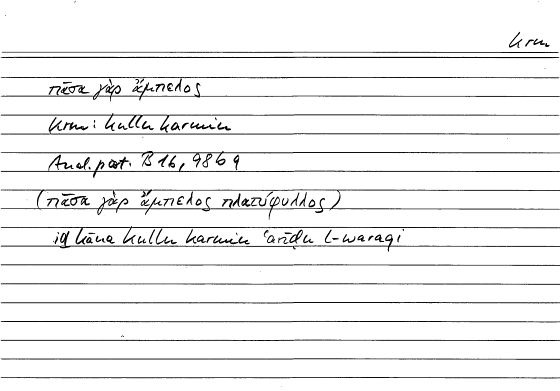 krm
πᾶσα γὰρ ἄμπελος
krm: kullu karmin
Anal. post. B 16, 98b9
(πᾶσα γὰρ ἄμπελος πλατύφυλλος)
iḏ kāna kullu karmin ʿarīḍu l-waraqi